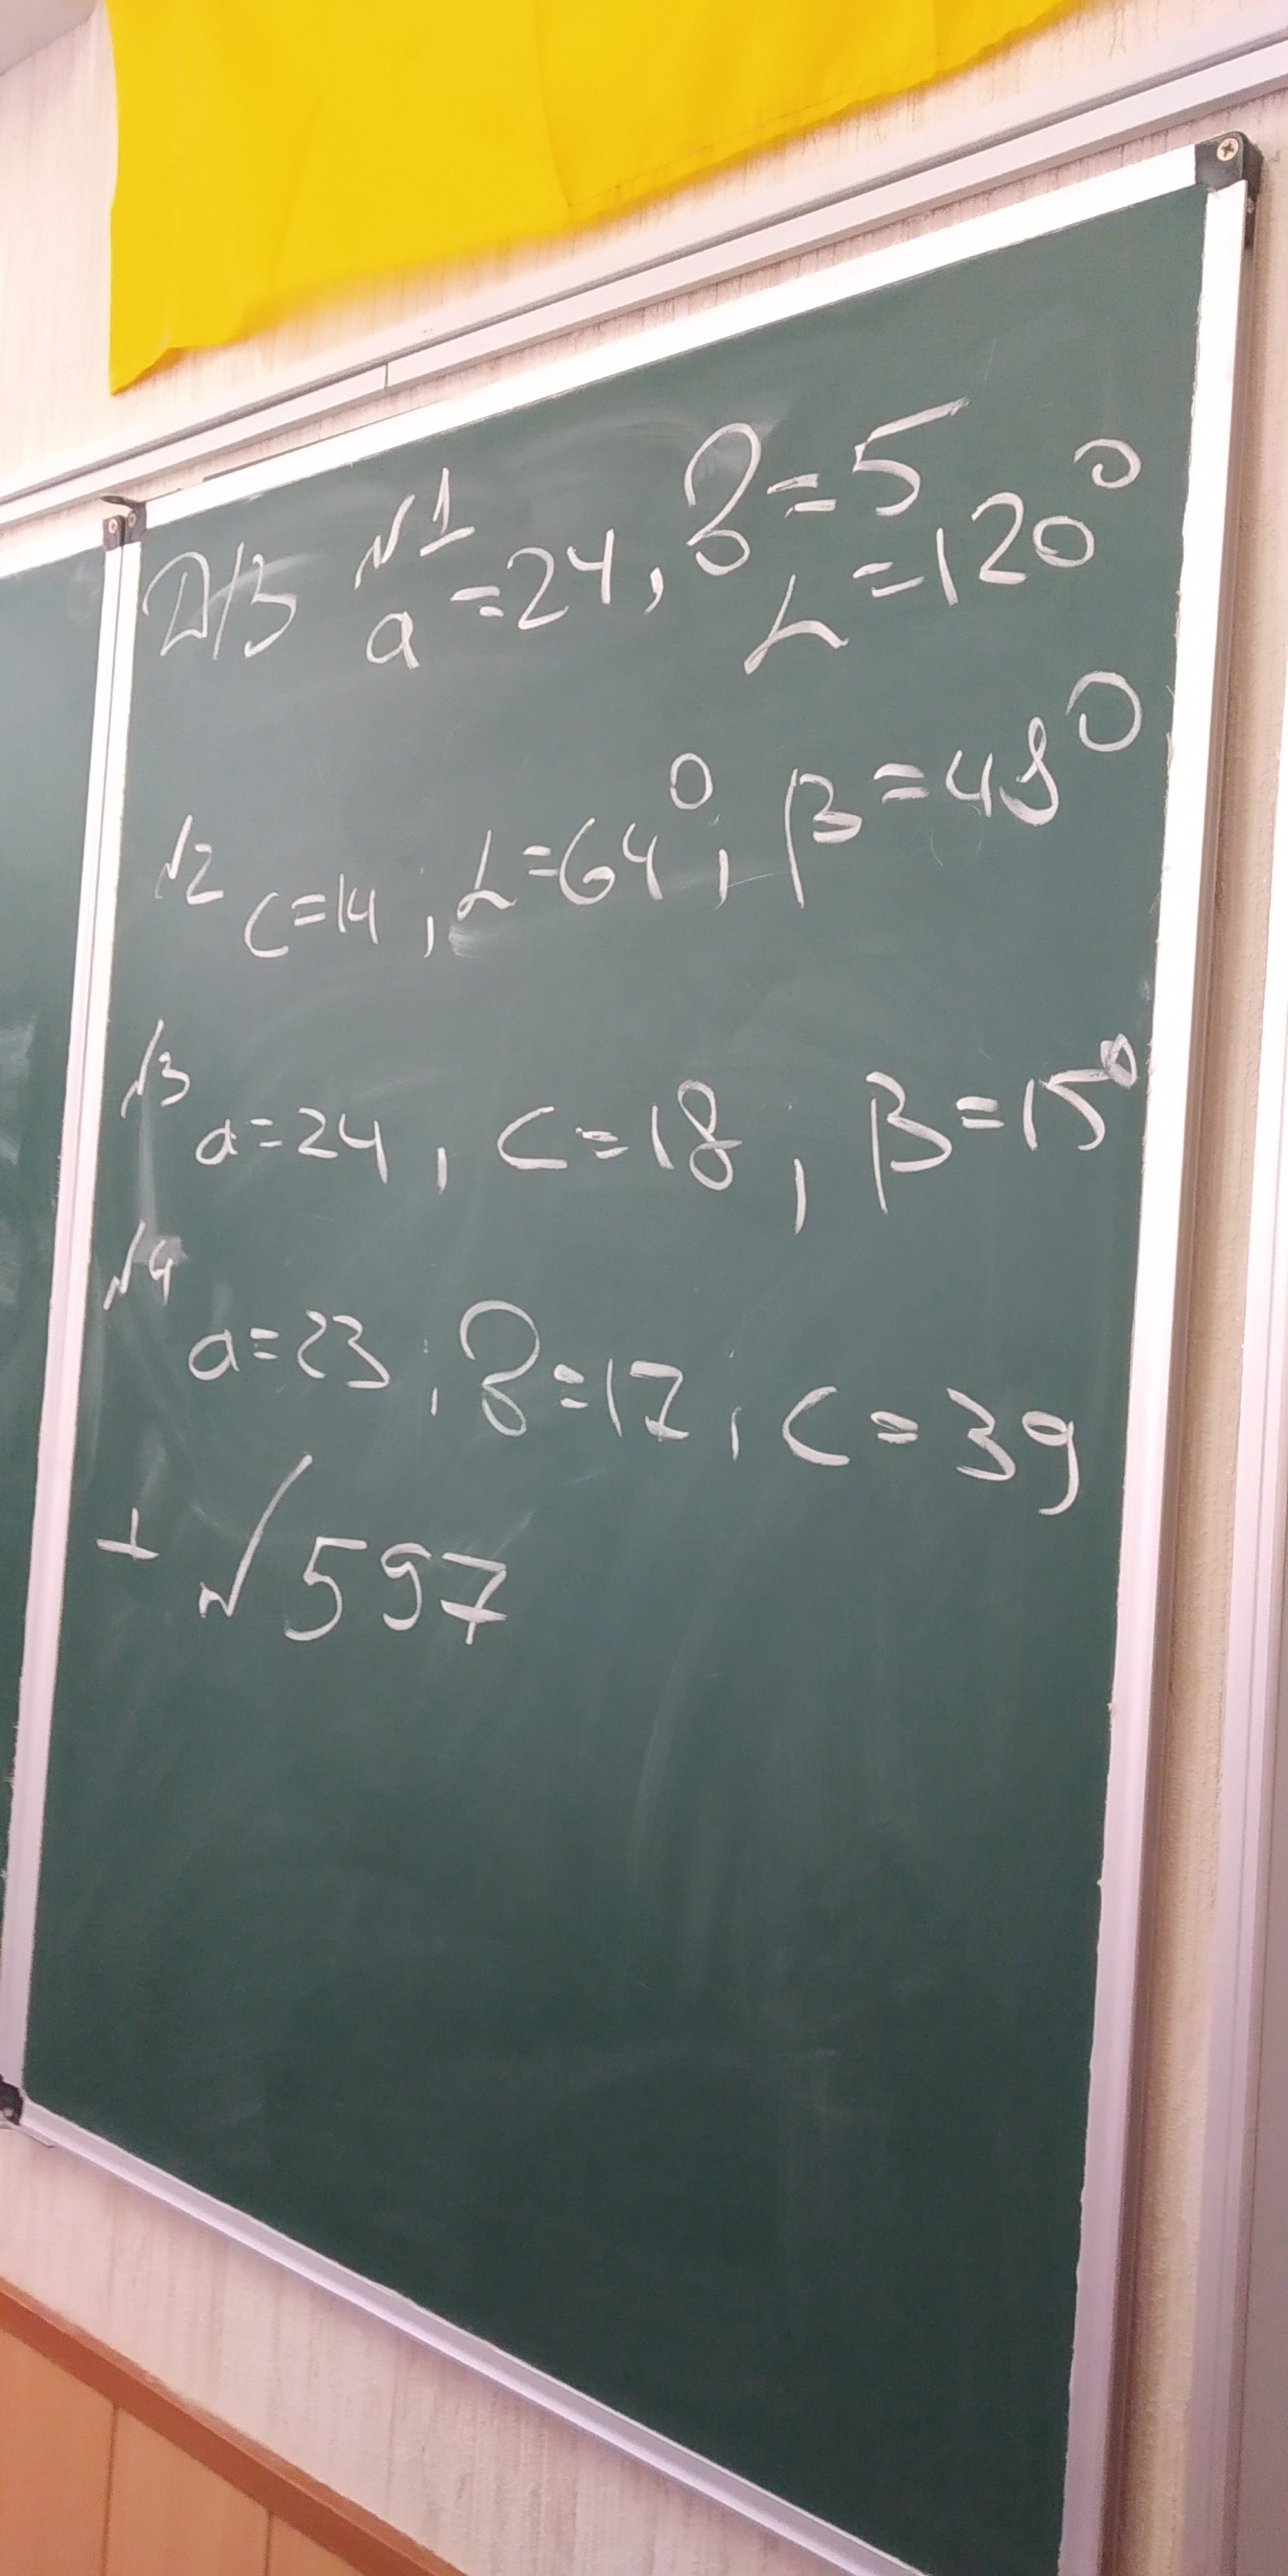 Д/З №1
a = 24, в = 5
α = 120°
№2 c = 14, α = 64°, β = 48°
№3
a = 24, c = 18, β = 15°
№4
a = 23, в = 17, c = 39
+ √597